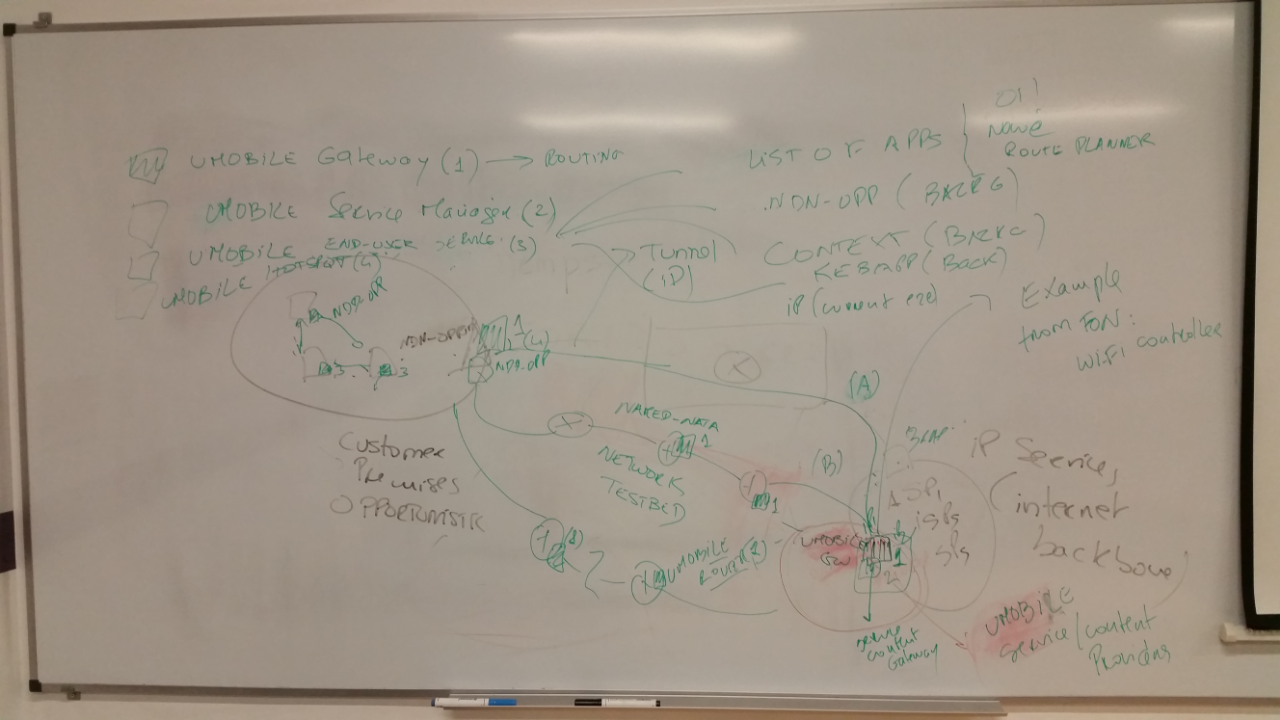 UMOBILE Gateway (1) → ROUTING
UMOBILE Service Manager (2)
UMOBILE END-USER SERVICE (3)
UMOBILE HOTSPOT (4)
LIST OF APPS
OI!
NOWÉ
ROUTE PLANNER
NDN-OPP (BACKG)
CONTEXT (BACKG)
KEBAPP (BACK)
iP (current
Tunnel
(iD)
Example
from FON:
WiFi controller
NDN-OPP
3
3
1
(4)
NDN-OPP
(A)
NAKED-NATA
1
NETWORK
TESTBED
(B)
1
Customer
Premises
OPPORTUNISTIC
(1)
UMOBILE
ROUTER (1)
UMOBILE
GW
1
2
ISPs
SPs
iP Services
(internet
backbone)
service
content
Gateway
UMOBILE
Service/content
Providers